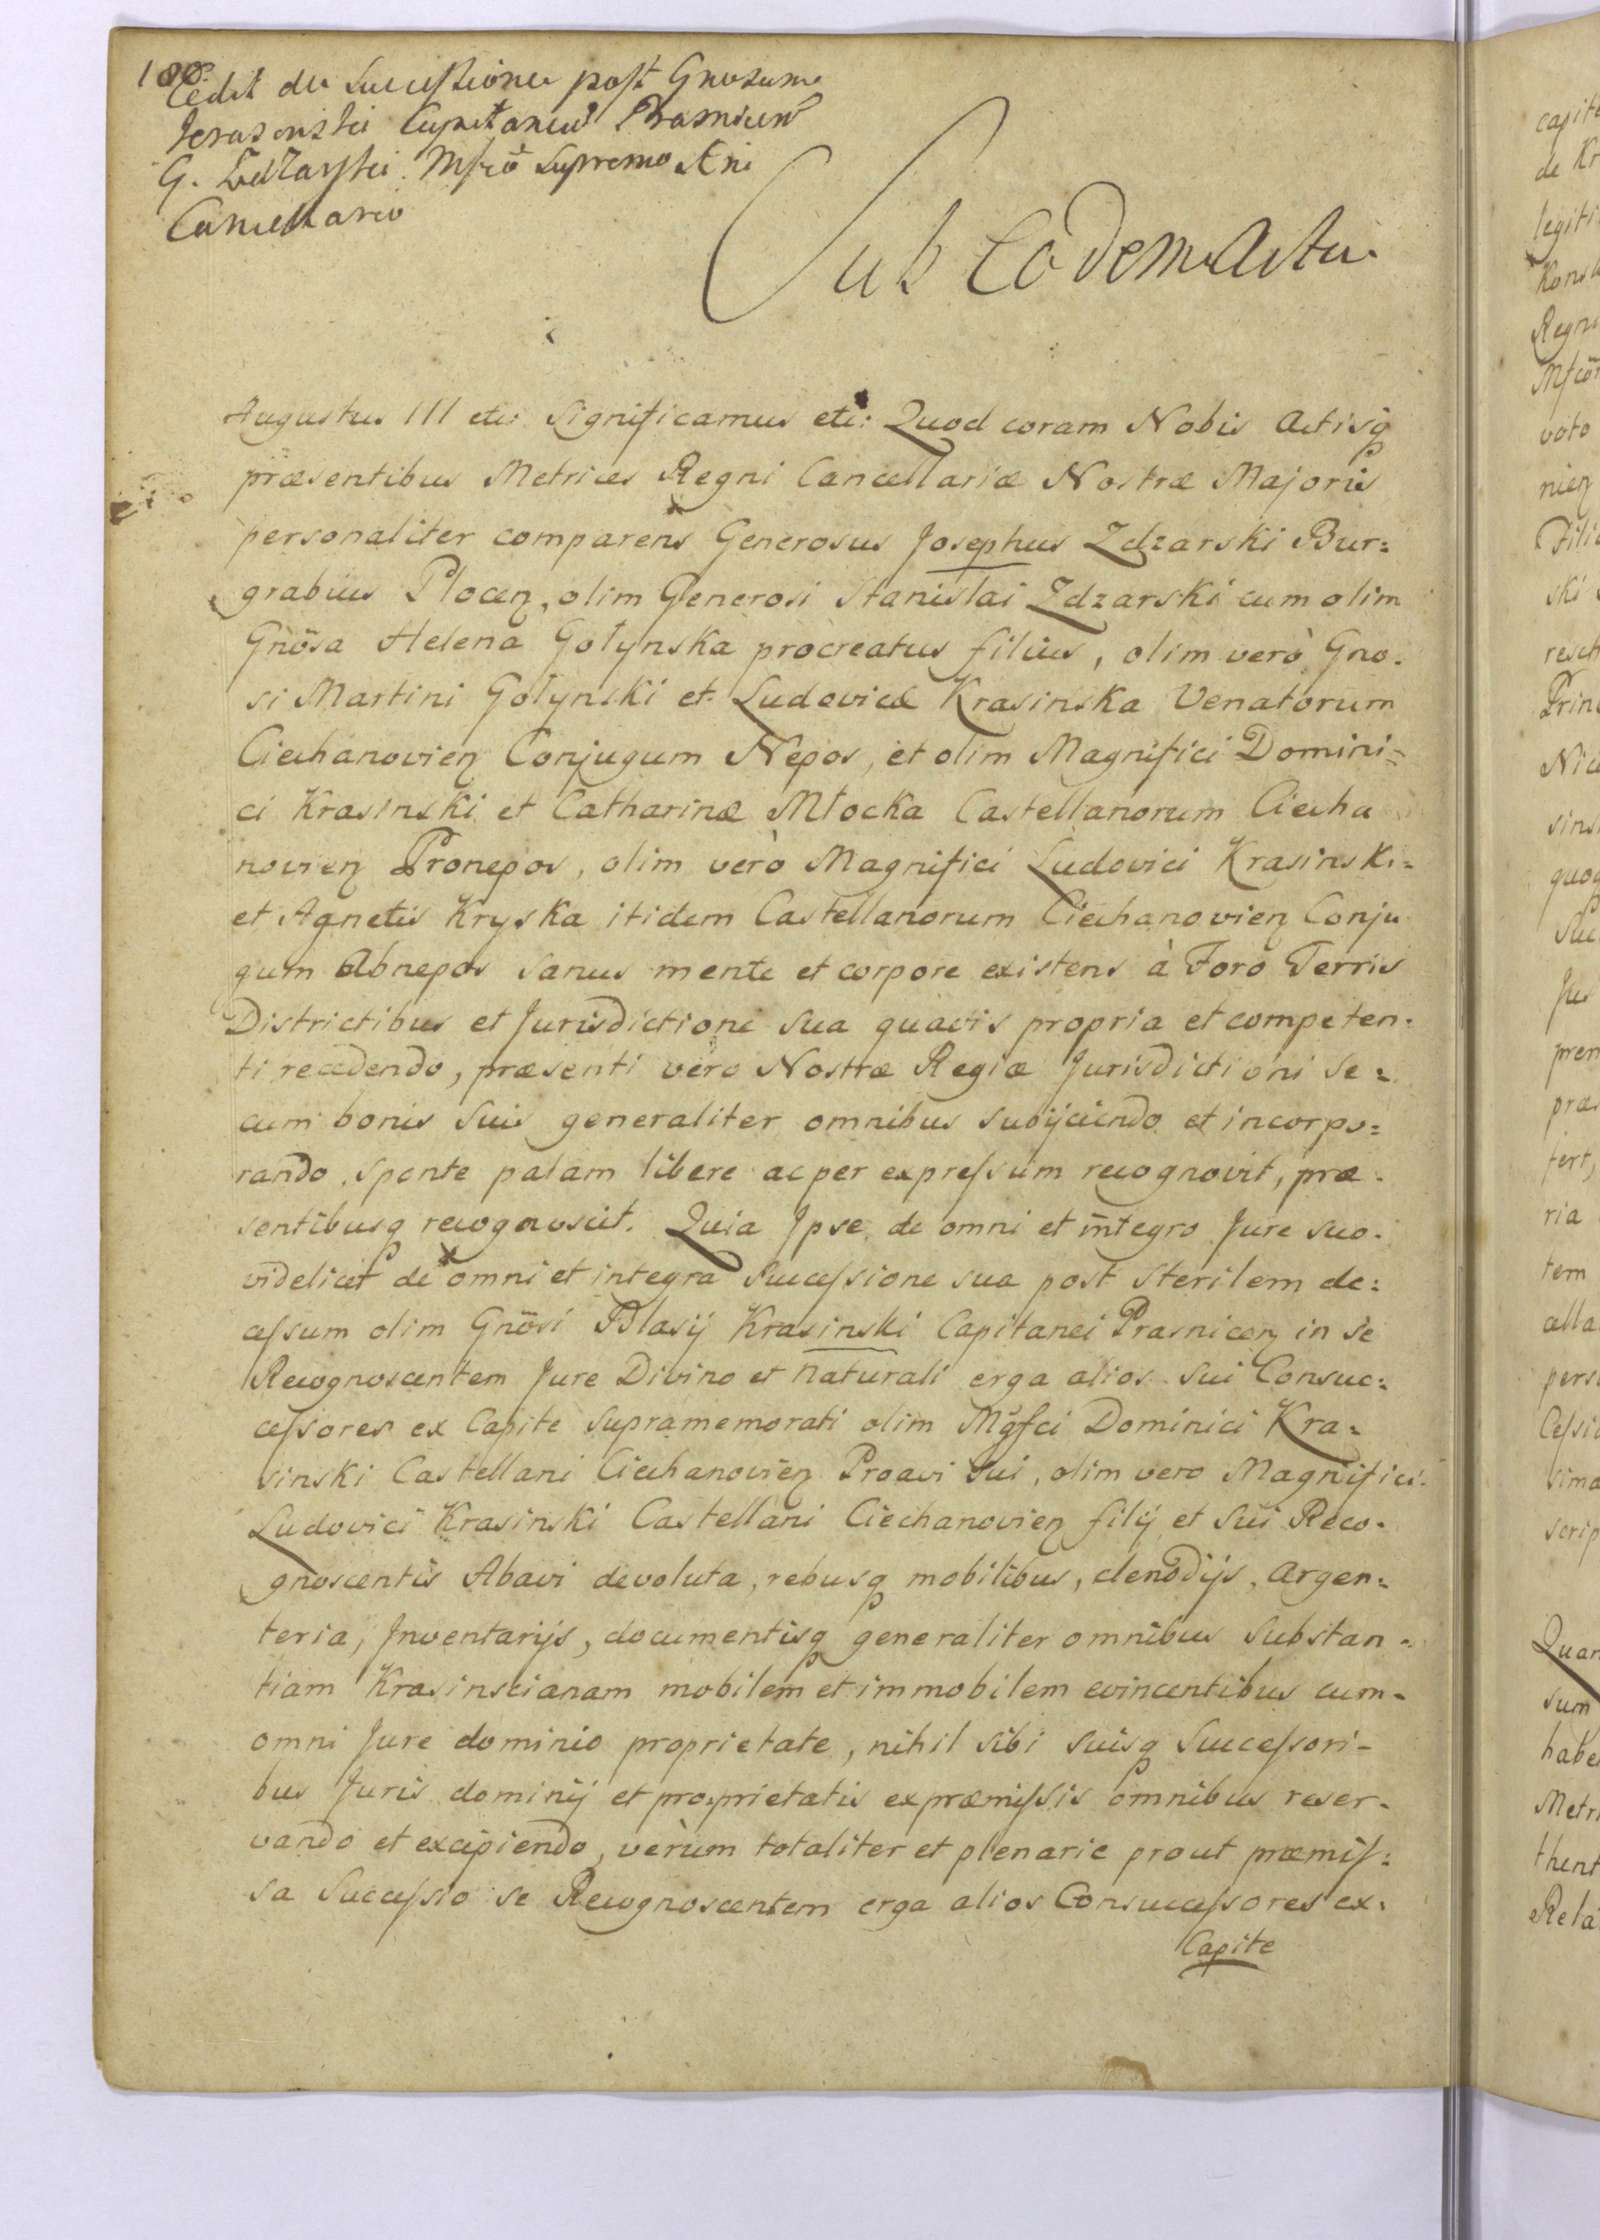 180.
Cedit de Successione post Gnosum
Krasinski Capitaneum Prasnicen
G. Zdzarski Mfco Supremo Rni
Cancellario
Sub Eodem Actu
Augustus III etc: Significamus etc: Quod coram Nobis Actisq
præsentibus Metrices Regni Cancellariæ Nostræ Majoris
personaliter comparens Generosus Josephus Zdzarski Bur=
grabius Plocen, olim Generosi Stanislai Zdzarski cum olim
Gnösa Helena Gołynska procreatus filius, olim verò Gno-
si Martini Gołynski et Ludovicæ Krasinska Venatorum
Ciechanovien Conjugum Nepos, et olim Magnifici Domini=
ci Krasinski et Catharinæ Młocka Castellanorum Ciecha
novien Pronepos, olim verò Magnifici Ludovici Krasinski=
et Agnetis Kryska itidem Castellanorum Ciechanovien Conju
gum Abnepos sanus mente et corpore existens à Foro Terris
Districtibus et Jurisdictione sua quavis propria et competen=
ti recedendo, præsenti vero Nostræ Regiæ Jurisdictioni se=
cum bonis suis generaliter omnibus subijciendo et incorpo=
rando, sponte palam libere ac per expressum recognovit, præ-
sentibusq recognoscit. Quia Ipse de omni et integro Jure suo.
videlicet de omni et integra Successione sua post sterilem de=
cessum olim Gnösi Blasij Krasinski Capitanei Prasnicen in se
Recognoscentem Jure Divino et naturali erga alios sui Consuc=
cessores ex Capite supramemorati olim Mgfci Dominici Kra=
sinski Castellani Ciechanovien Proavi sui, olim vero Magnifici
Ludovici Krasinski Castellani Ciechanovien filij et sui Reco-
gnoscentis Abavi devoluta, rebusq mobilibus, clenodijs, argen=
teria, Inventarijs, documentisq generaliter omnibus Substan-
tiam Krasinscianam mobilem et immobilem evincentibus cum-
omni Jure dominio proprietate, nihil sibi suisq Successori-
bus Juris dominij et proprietatis ex præmissis omnibus reser-
vando et excipiendo, verùm totaliter et plenarie prout præmis=
sa Successio se Recognoscentem erga alios Consuccessores ex-
Capite